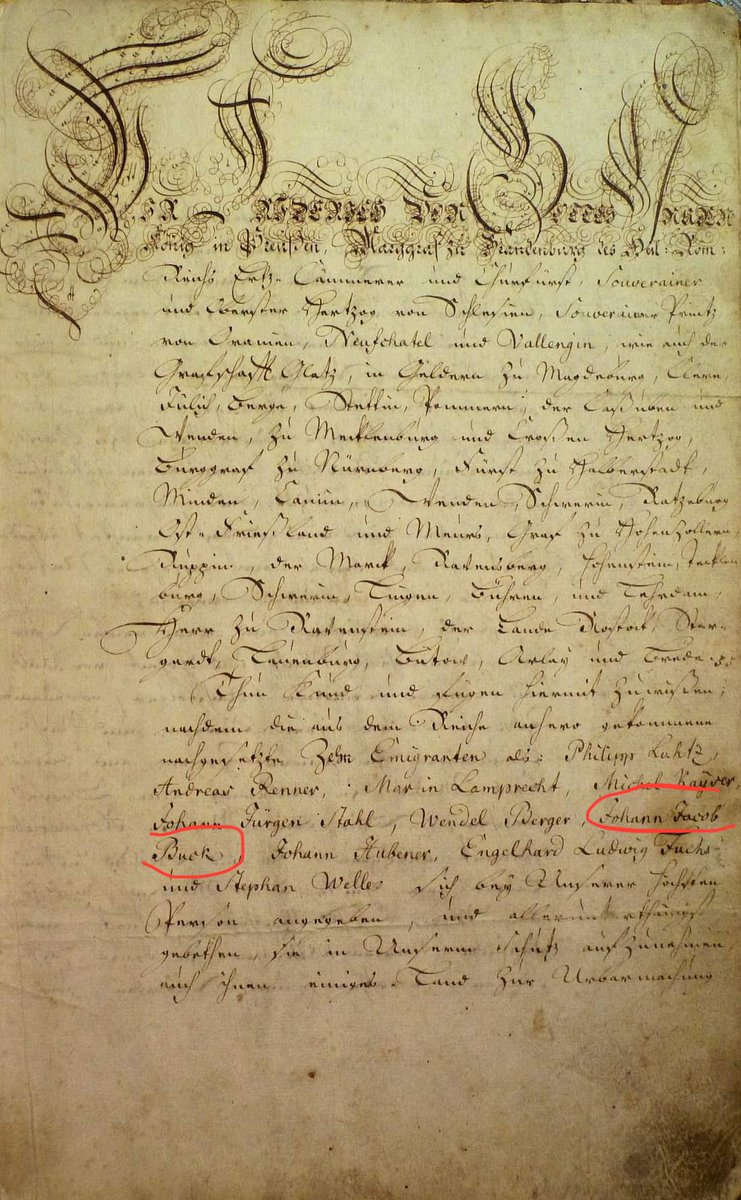 Wir Friderich von Gottes Gnaden
König in Preußen, Marggraf zu Brandenburg des Heil: Röm:
Reichs Ertz-Cämmerer und Churfürst, Souverainer
und Oberster Hertzog von Schlesien, Souverainer Printz
von Oranien, Neufchatel und Vallengin, wie auch der
Grafschafft Glatz, in Geldern zu Magdeburg, Cleve,
Jülich, Berge, Stettin, Pommern, der Caßuben und
Wenden, zu Mecklenburg und Croßen Hertzog,
Burggraf zu Nürnberg, Fürst zu Halberstadt,
Minden, Camin, Wenden, Schwerin, Ratzeburg
Ost-Frießland und Meurs, Graf zu Hohenzollern,
Ruppin, der Marck, Ravensberg, Hohenstein, Tecklen
burg, Schwerin, Lingen, Bühren, und Lehrdam,
Herr zu Ravenstein, der Lande Rostock, Star-
gardt, Lauenburg, Bütow, Arlay und Breda
Thun Kund und fügen hiermit zuwißen;
nachdem die aus dem Reiche anhero gekommene
nachgesetzte Zehn Emigranten als: Philipp Luhtz,
Andreas Renner, Martin Lamprecht, Michel Kayser,
Johann Jürgen Stahl, Wendel Berger, Johann Jacob
Buck, Johann Hubener, Engelhard Ludwig Fuchs
und Stephan Welles sich bey Unserer Höchsten
Persohn angegeben, und allerunterthänigst
gebethen, sie in Unserm Schutz aufzunehmen,
auch ihnen einiges Land zur Urbarmachung